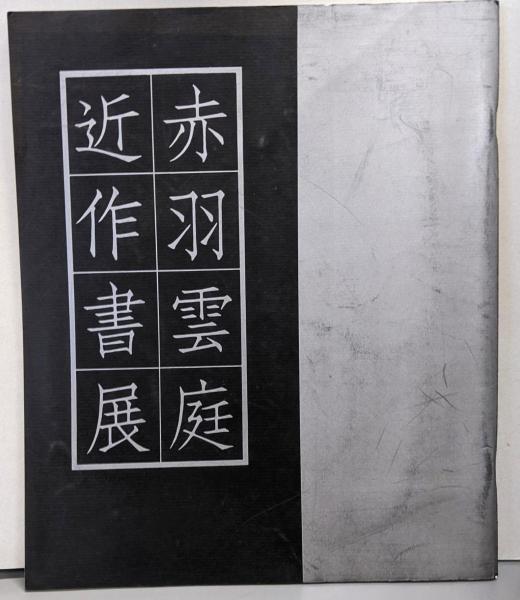 赤羽雲庭
近作書展